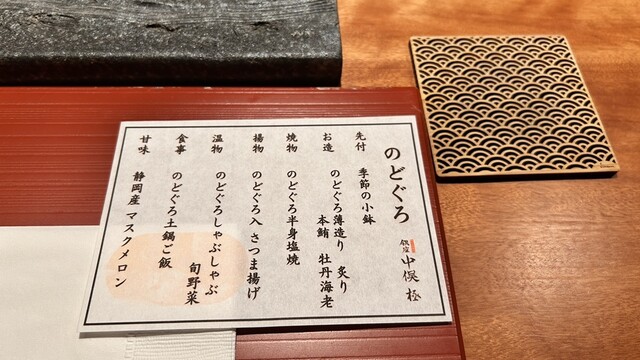 のどぐろ
銀座 中俣 極
先付 季節の小鉢
お造 のどぐろ薄造り 炙り
本鮪 牡丹海老
焼物 のどぐろ半身塩焼
揚物 のどぐろ入さつま揚げ
温物 のどぐろしゃぶしゃぶ
旬野菜
食事 のどぐろ土鍋ご飯
甘味 静岡産 マスクメロン